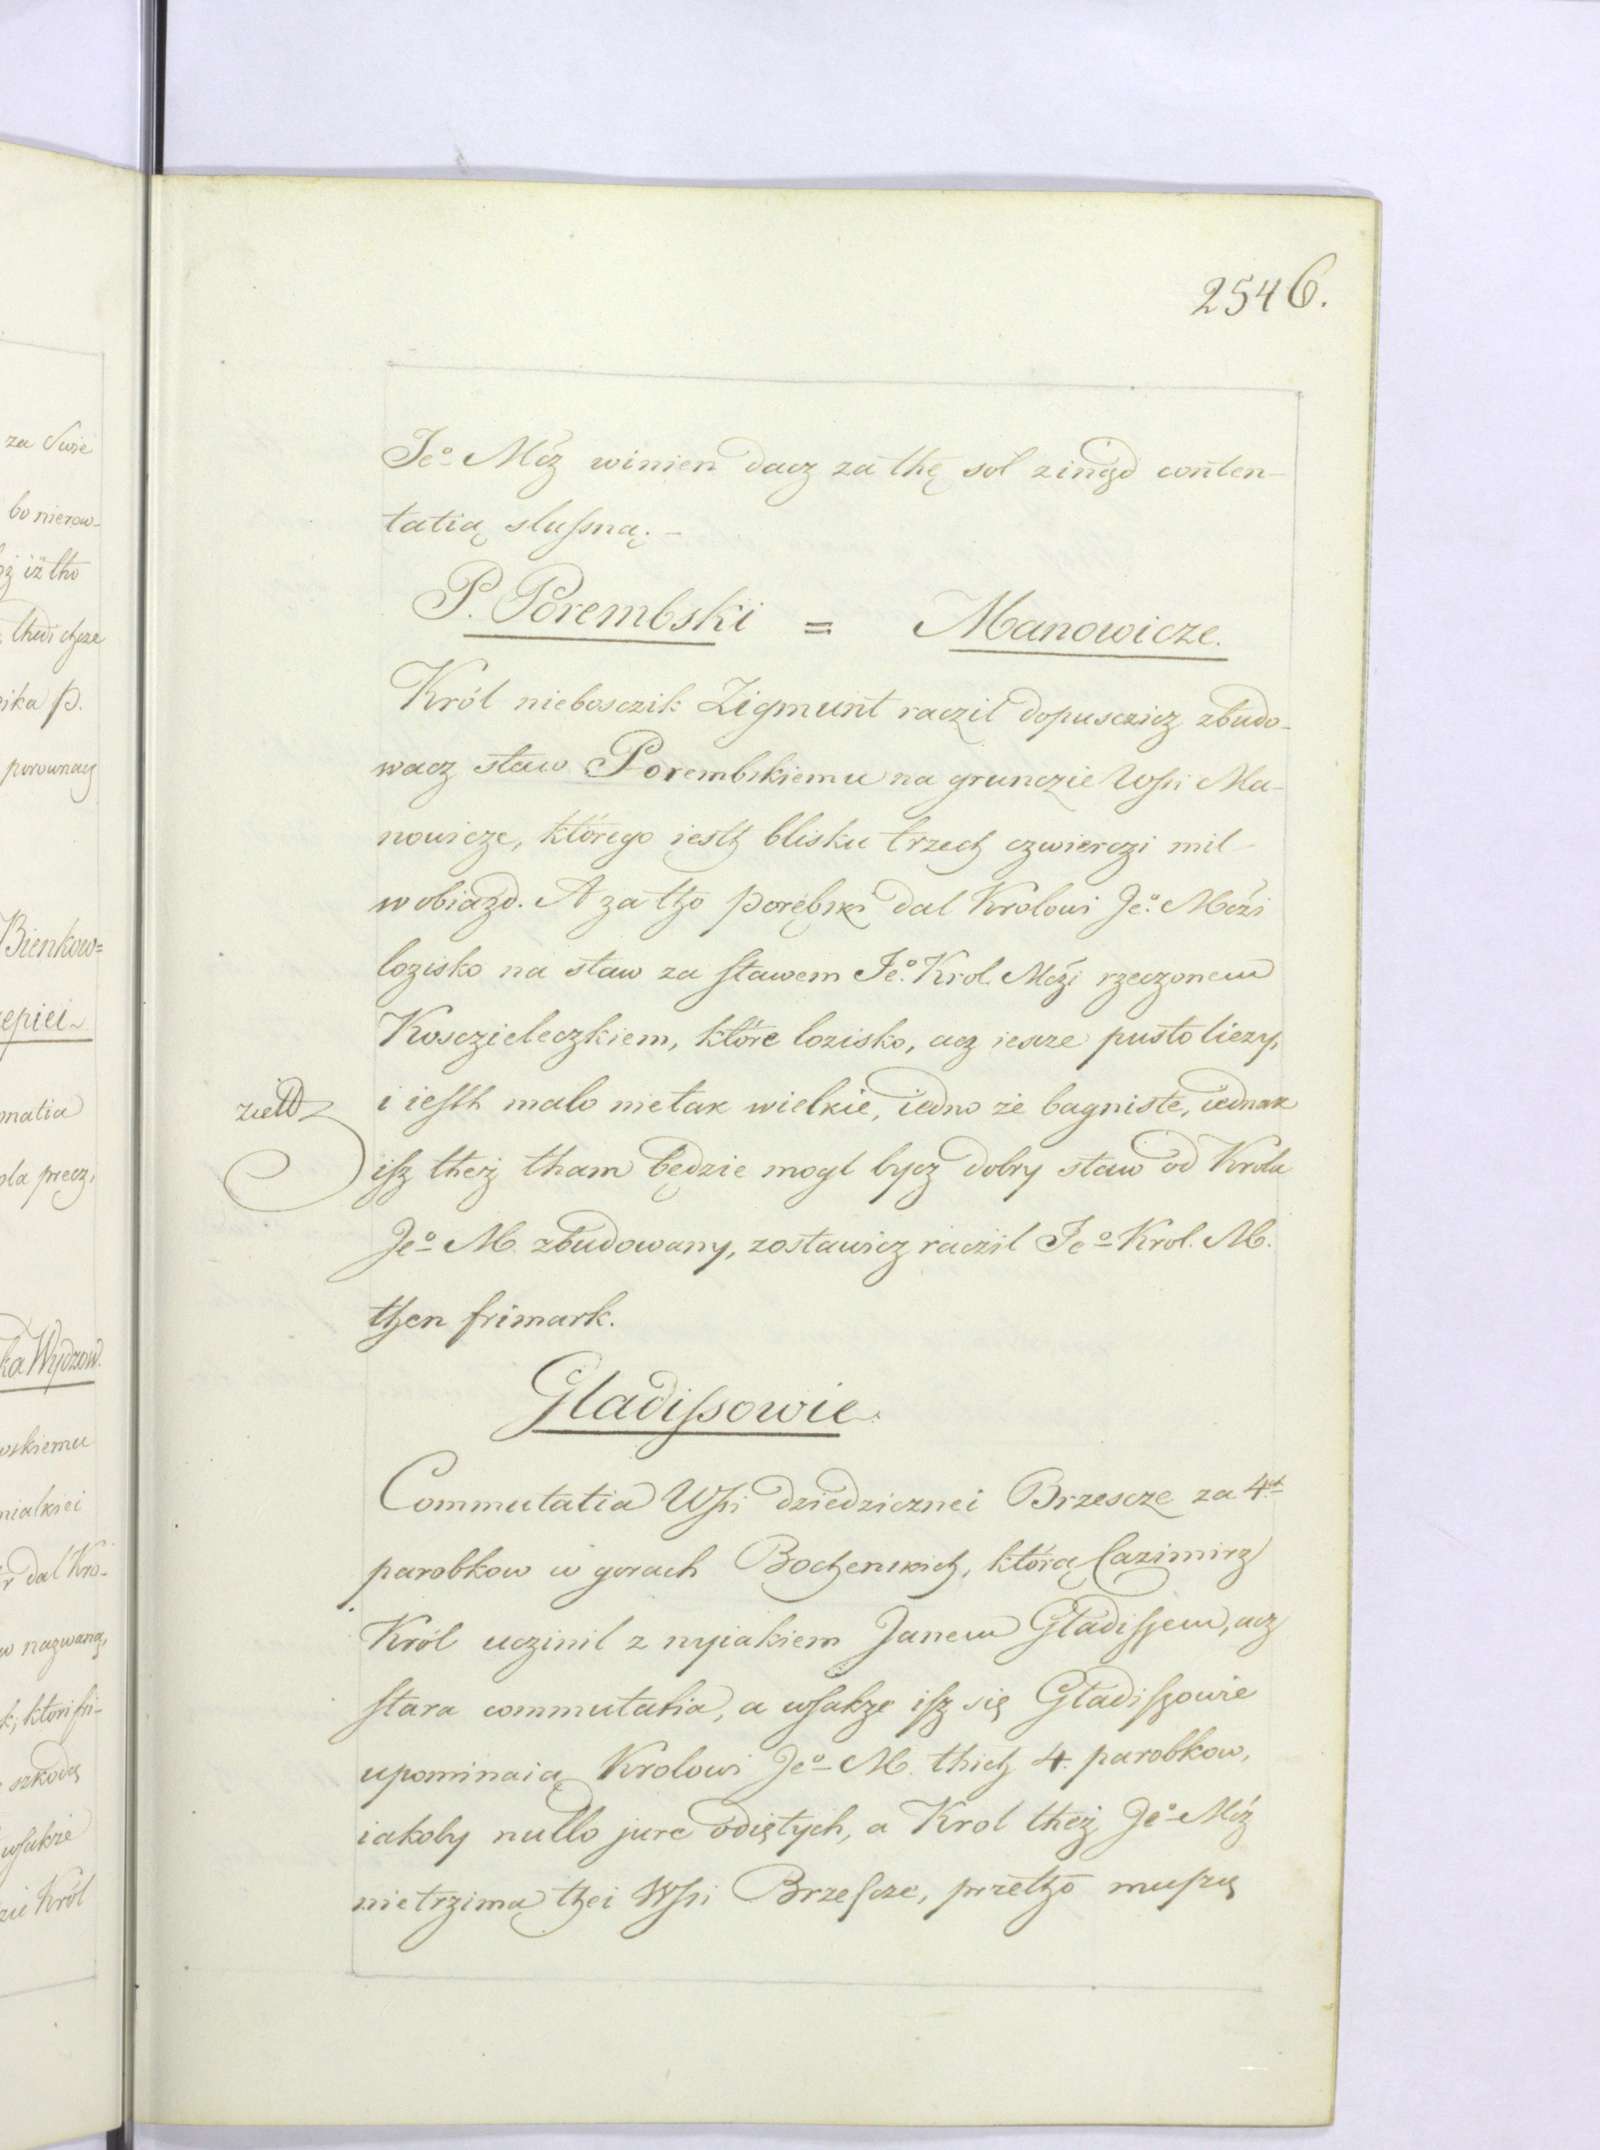 2546.
Jeº Mćz winien dacz za thę sol zinąd conten-
tatią slussną. -
P. Porembski = Manowicze.
Król nieboszczik Zigmunt raczil dopusczicz zbudo-
wacz staw Porembskiemu na grunczie Wsi Ma-
nowicze, którego iesth blisku trzech czwierczi mil
w obiazd. A za tho Porębski dal Krolowi Jeº Mćzi
lozisko na staw za stawem Jeº Krol. Mćzi rzeczonem
Kosczieleczkiem, które lozisko, acz iescze pusto liezy,
i iesth malo nietak wielkie, iedno że bagniste, iednak
isz theż tham będzie mogl bycz dobry staw od Krola
Jeº M. zbudowany, zostawicz raczil Jeº Krol. M.
then frimark.
Gladissowie.
Commutatia Wsi dziedzicznei Brzescze za 4ch
parobkow w gorach Bochenskich, którą Cazimirz
Król uczinil z nyiakiem Janem Gladissem, acz
stara commutatia, a wsakze isz się Gladiszowie
upominaią Krolowi Jeº M. thich 4. parobkow,
iakoby nullo jure odiętych, a Krol theż Jeº Mćz
nie trzima thei Wsi Brzescze, przetho muszą
za Swie
bo nierow-
iż tho
ika p.
porownacz
Bienkow=
epiei
matia
pla precz,
ka Wydzow.
wskiemu
mialkiei
r dal Kro-
w nazwaną,
k, ktori fri-
szkodą
wsakze
zie Król